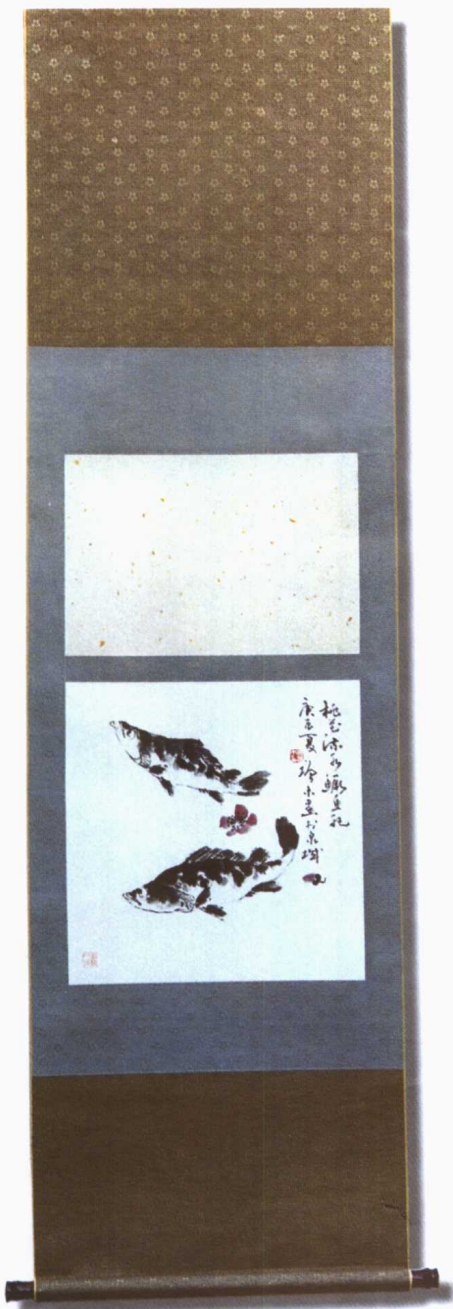 桃花流水鳜鱼肥
庚辰夏 珍木画于泉城